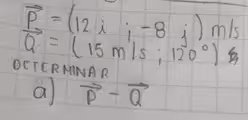 P⃗ = (12 i ; -8 j) m/s
Q⃗ = (15 m/s ; 120°)
DETERMINAR
a) P⃗ - Q⃗